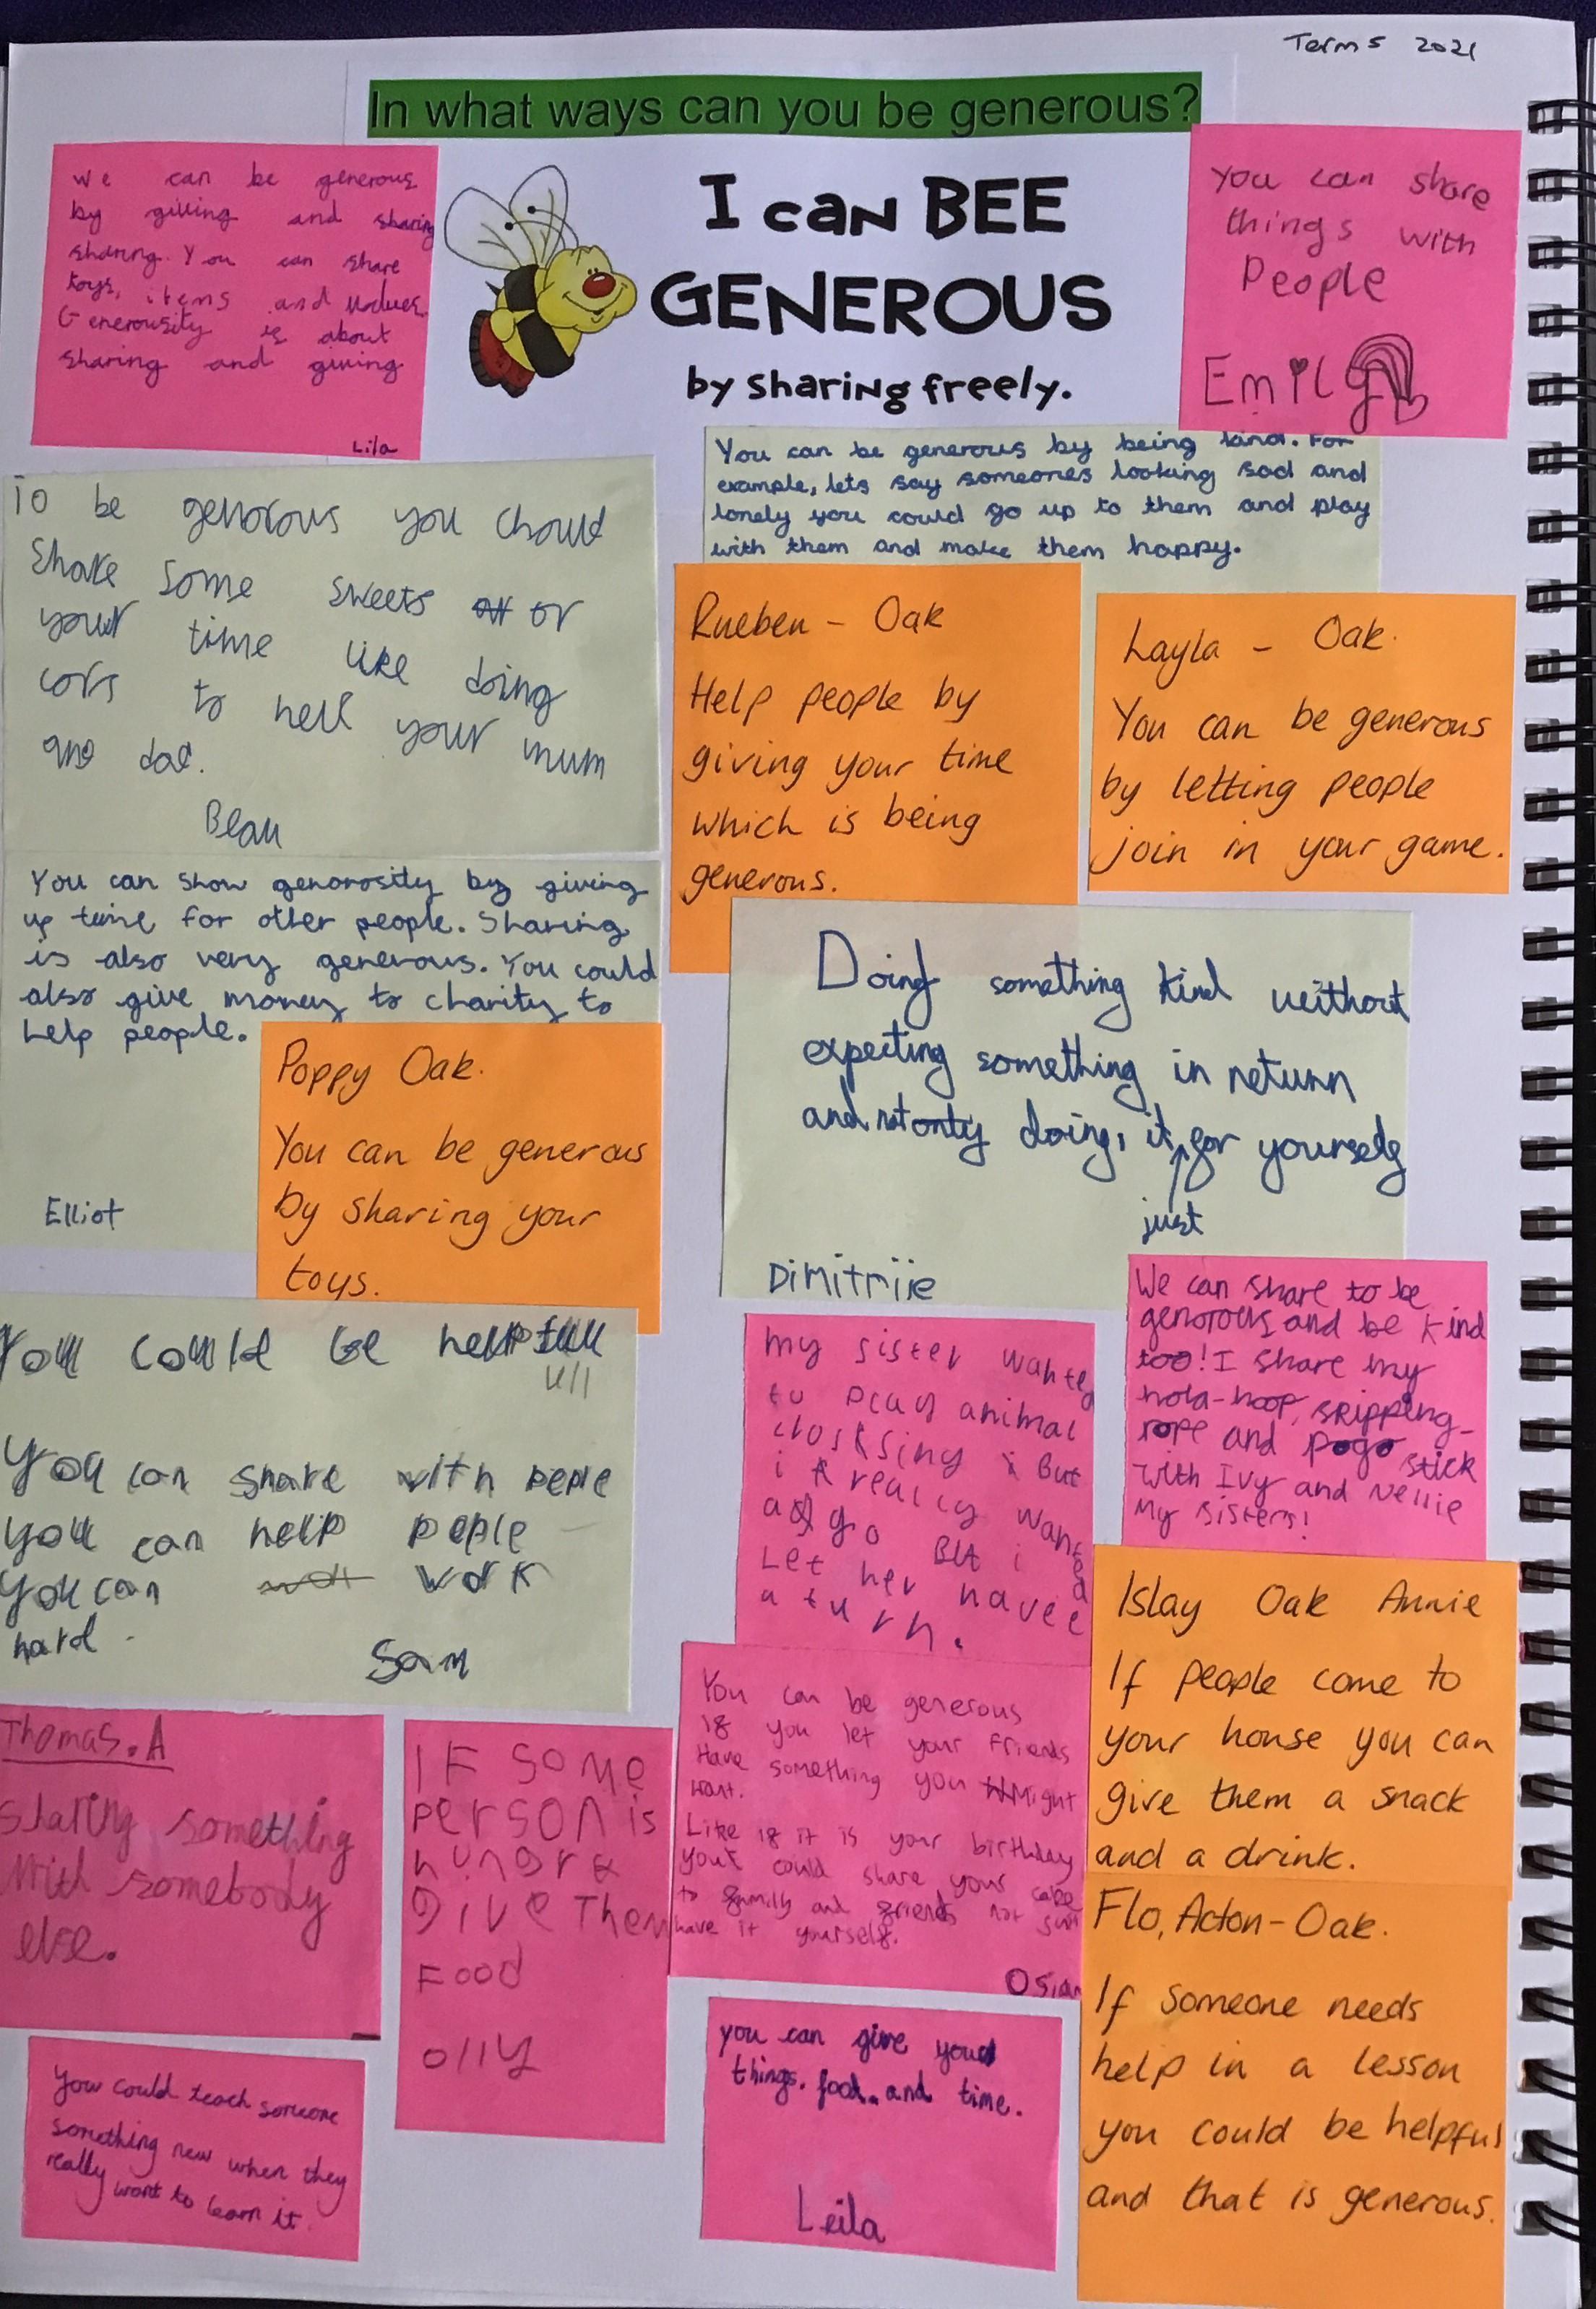 Term 5 2021
In what ways can you be generous?
I can BEE
GENEROUS
by sharing freely.
we can be generous
by giving and sharing
sharing. You can share
toys, items and values.
Generousity is about
sharing and giving
Lila
You can share
things with
People
Emily
You can be generous by being kind. For
example, lets say someones looking sad and
lonely you could go up to them and play
with them and make them happy.
To be genorous you chould
share some sweets or
your time like doing
cors to hell your mum
and dad.
Beau
Rueben - Oak
Help people by
giving your time
which is being
generous.
Layla - Oak.
You can be generous
by letting people
join in your game.
You can show generosity by giving
up time for other people. Sharing
is also very generous. You could
also give money to charity to
help people.
Elliot
Poppy Oak.
You can be generous
by sharing your
toys.
Doing something kind without
expecting something in return
and not only doing it just for yourself
Dimitriie
You could be helpfull
You can share with peple
you can help peple
you can work
hard.
Sam
my sister wanted
to play animal
i But
i really wanted
a go But i
Let her havee
a turn.
We can share to be
genorous and be kind
too! I share my
hola-hoop, skipping-
rope and pogo stick
with Ivy and Nellie
My sisters!
Islay Oak Annie
If people come to
your house you can
give them a snack
and a drink.
Thomas.A
Sharing something
with somebody
else.
IF some
person is
hungry
give Them
Food
olly
You can be generous
if you let your friends
Have something you Might
want.
Like if it is your birthday
you could share your cake
to family and friends not just
have it yourself.
Osian
Flo, Acton - Oak.
If someone needs
help in a lesson
you could be helpful
and that is generous.
You could teach someone
something new when they
really want to learn it.
you can give your
things. food. and time.
Leila